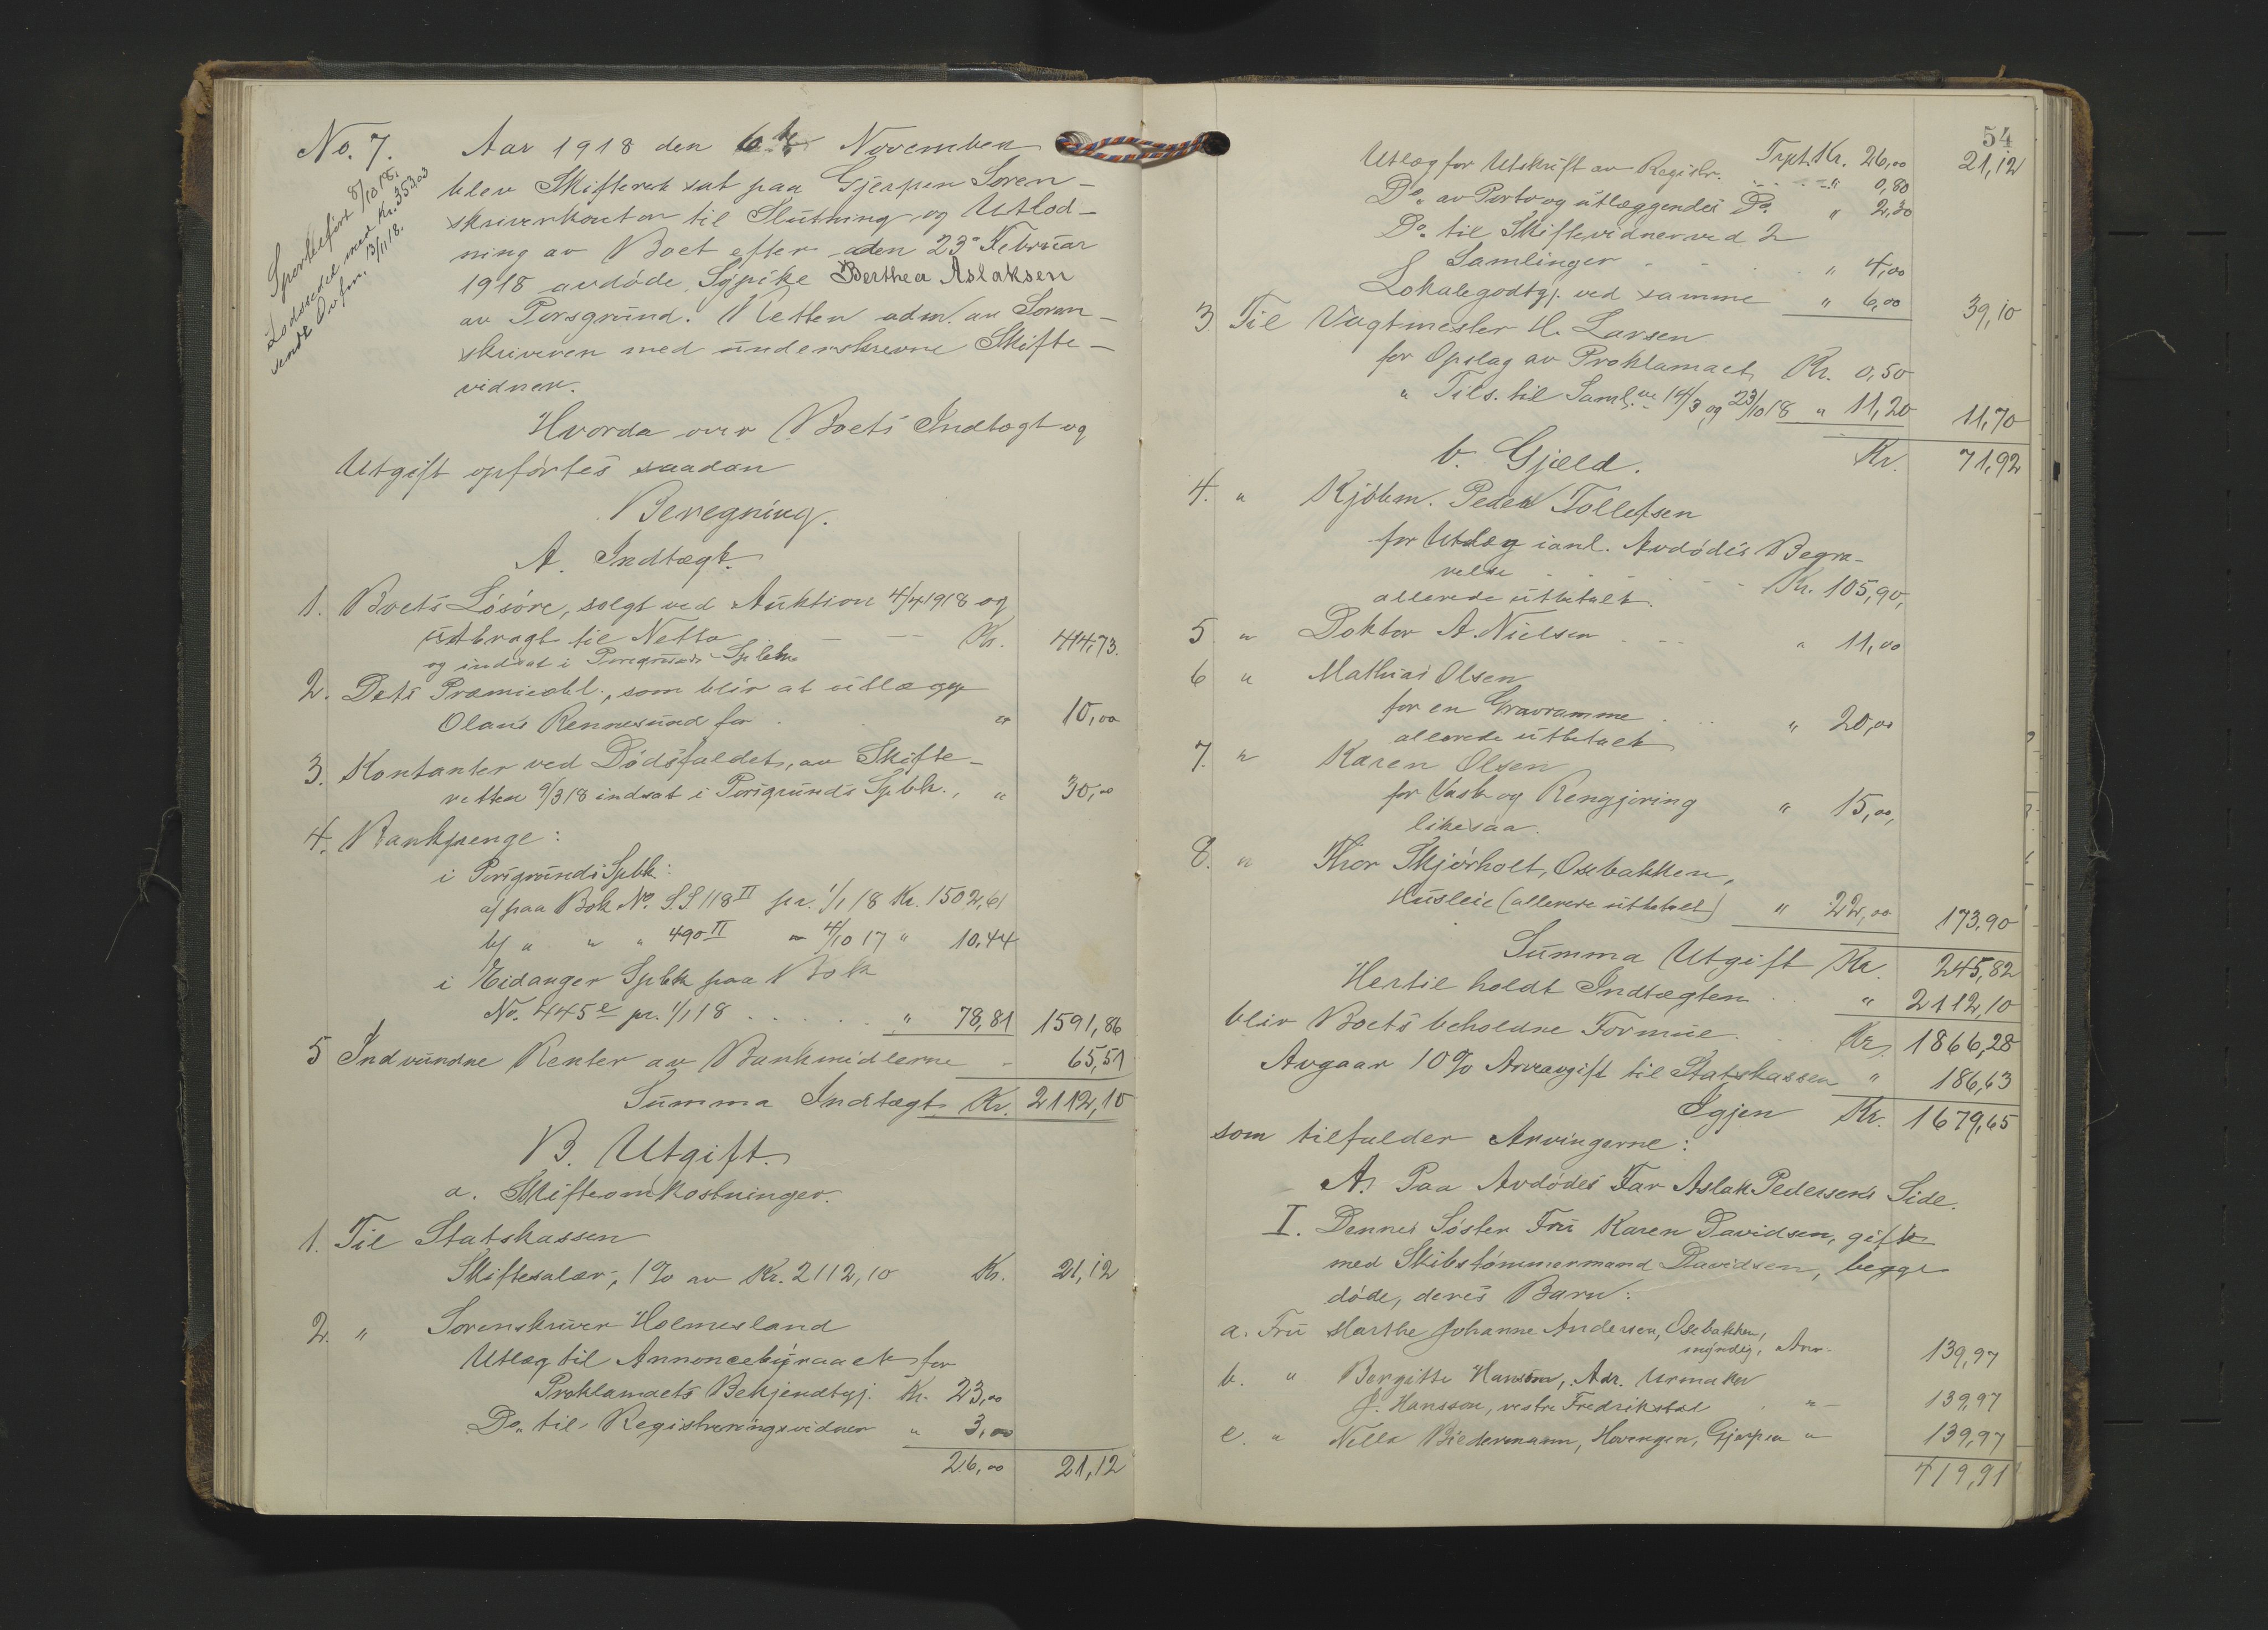 No. 7.
Sportelført 8/10 18.
Lodseddel med Kr. 353,03
sendt Ovfm. 13/11 18.
Aar 1918 den 6te November
blev Skifteret sat paa Gjerpen Soren-
skriverkontor til Slutning og Utlod-
ning av Boet efter den 23de Februar
1918 avdøde Sypike Berthea Aslaksen
av Porsgrund. Retten adm. av Soren-
skriveren med underskrevne Skifte-
vidner.
Hvorda over Boets Indtægt og
Utgift opførtes saadan
Beregning.
A. Indtægt.
1. Boets Løsøre, solgt ved Auktion 4/4 1918 og
utbragt til Netto Kr. 414,73.
og indsat i Porsgrunds Spbk.
2. Dets Præmieobl., som blir at utlægge
Olaus Rennesund for " 10,00
3. Kontanter ved Dødsfaldet, av Skifte-
retten 9/3 18 indsat i Porsgrunds Spbk., " 30,00
4. Bankpenge:
i Porsgrunds Spbk:
a/ paa Bok No. S.S 118 II pr. 1/1 18 Kr. 1502,61
b/ " " " 490 II - 4/10 17 " 10,44
i Eidanger Spbk paa Bok
No. 445 e pr. 1/1 18 . . . . . " 78,81 1591,86
5 Indvundne Renter av Bankmidlerne - 65,51
Summa Indtægt Kr. 2112,10
B. Utgift.
a. Skifteomkostninger.
1. Til Statskassen
Skiftesalær, 1% av Kr. 2112,10 Kr. 21,12
2. " Sorenskriver Holmesland
Utlæg til Annoncebyraaet for
Proklamaets Bekjendtgj. Kr. 23,00
Do. til Registreringsvidner " 3,00
26,00 21,12
54
Trpt. Kr. 26,00 21,12
Utlæg for Utskrift av Registr. . . . - " 0,80
Do. av Porto og utlæggendes Do. " 2,30
Do. til Skiftevidner ved 2
Samlinger - - - " 4,00
Lokalegodtgj. ved samme " 6,00 39,10
3. Til Vagtmester H. Larsen
for Opslag av Proklamaet Kr. 0,50
" Tils. til Saml.ne 14/3 og 23/10 18 " 11,20 11,70
Kr. 71,92
b. Gjæld.
4. " Kjøbm. Peder Tollefsen
for Utlæg i anl. Avdødes Begra-
velse . . . - - - Kr. 105,90,
allerede utbetalt.
5 " Doktor A. Nielsen . . . " 11,00
6 " Mathias Olsen
for en Gravramme . . . " 20,00
allerede utbetalt
7. " Karen Olsen
for Vask og Rengjøring " 15,00,
likesaa.
8. " Thor Skjørholt, Osebakken,
Husleie (allerede utbetalt) " 22,00 173,90
Summa Utgift Kr. 245,82
Hertil holdt Indtægten . " 2112,10
blir Boets beholdne Formue . . Kr. 1866,28
Avgaar 10% Arveavgift til Statskassen " 186,63
Igjen Kr. 1679,65
som tilfalder Arvingerne:
A. Paa Avdødes Far Aslak Pedersens Side.
I. Dennes Søster Fru Karen Davidsen, gift
med Skibstømmermand Davidsen, begge
døde, deres Barn:
a. Fru Marthe Johanne Andersen, Osebakken,
myndig, Arv. 139,97
b. " Bergitte Hansson, Adr. Urmaker
J. Hansson, vestre Fredrikstad . " - 139,97
c. " Nella Biedermann, Hovengen, Gjerpen " 139,97
419,91